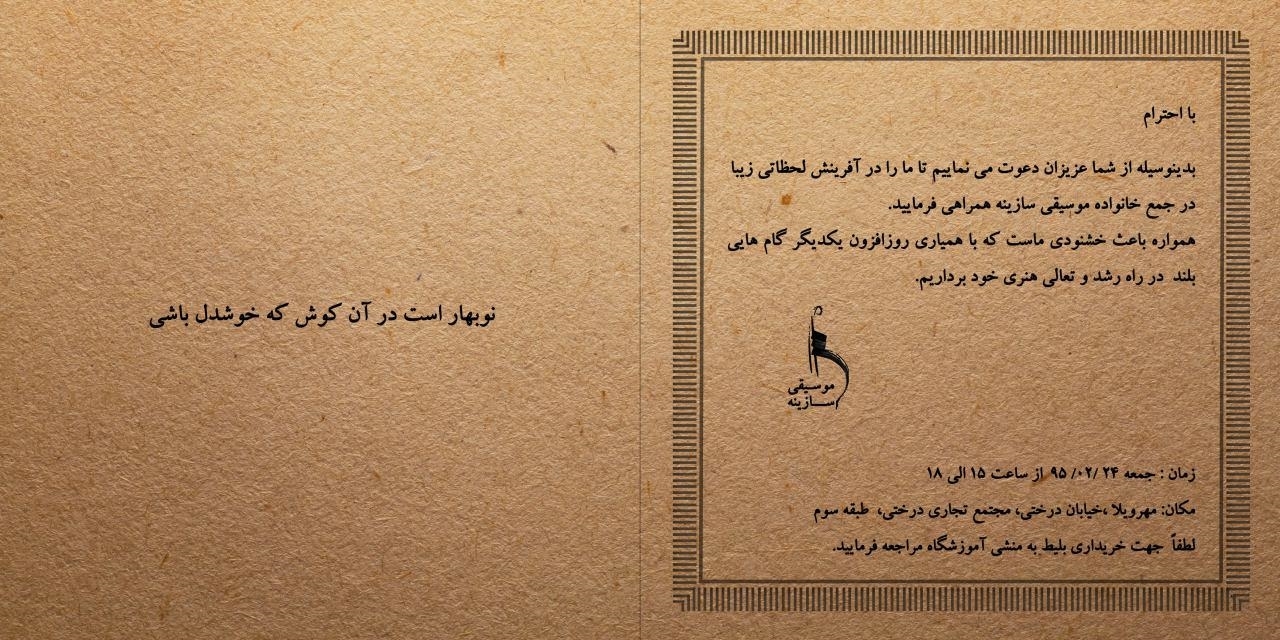 با احترام
بدینوسیله از شما عزیزان دعوت می نماییم تا ما را در آفرینش لحظاتی زیبا
در جمع خانواده موسیقی سازینه همراهی فرمایید.
همواره باعث خشنودی ماست که با همیاری روزافزون یکدیگر گام هایی
بلند در راه رشد و تعالی هنری خود برداریم.
موسیقی
سازینه
زمان : جمعه ۲۴ /۰۲/ ۹۵ از ساعت ۱۵ الی ۱۸
مکان: مهرویلا ،خیابان درختی، مجتمع تجاری درختی، طبقه سوم
لطفاً جهت خریداری بلیط به منشی آموزشگاه مراجعه فرمایید.
نوبهار است در آن کوش که خوشدل باشی